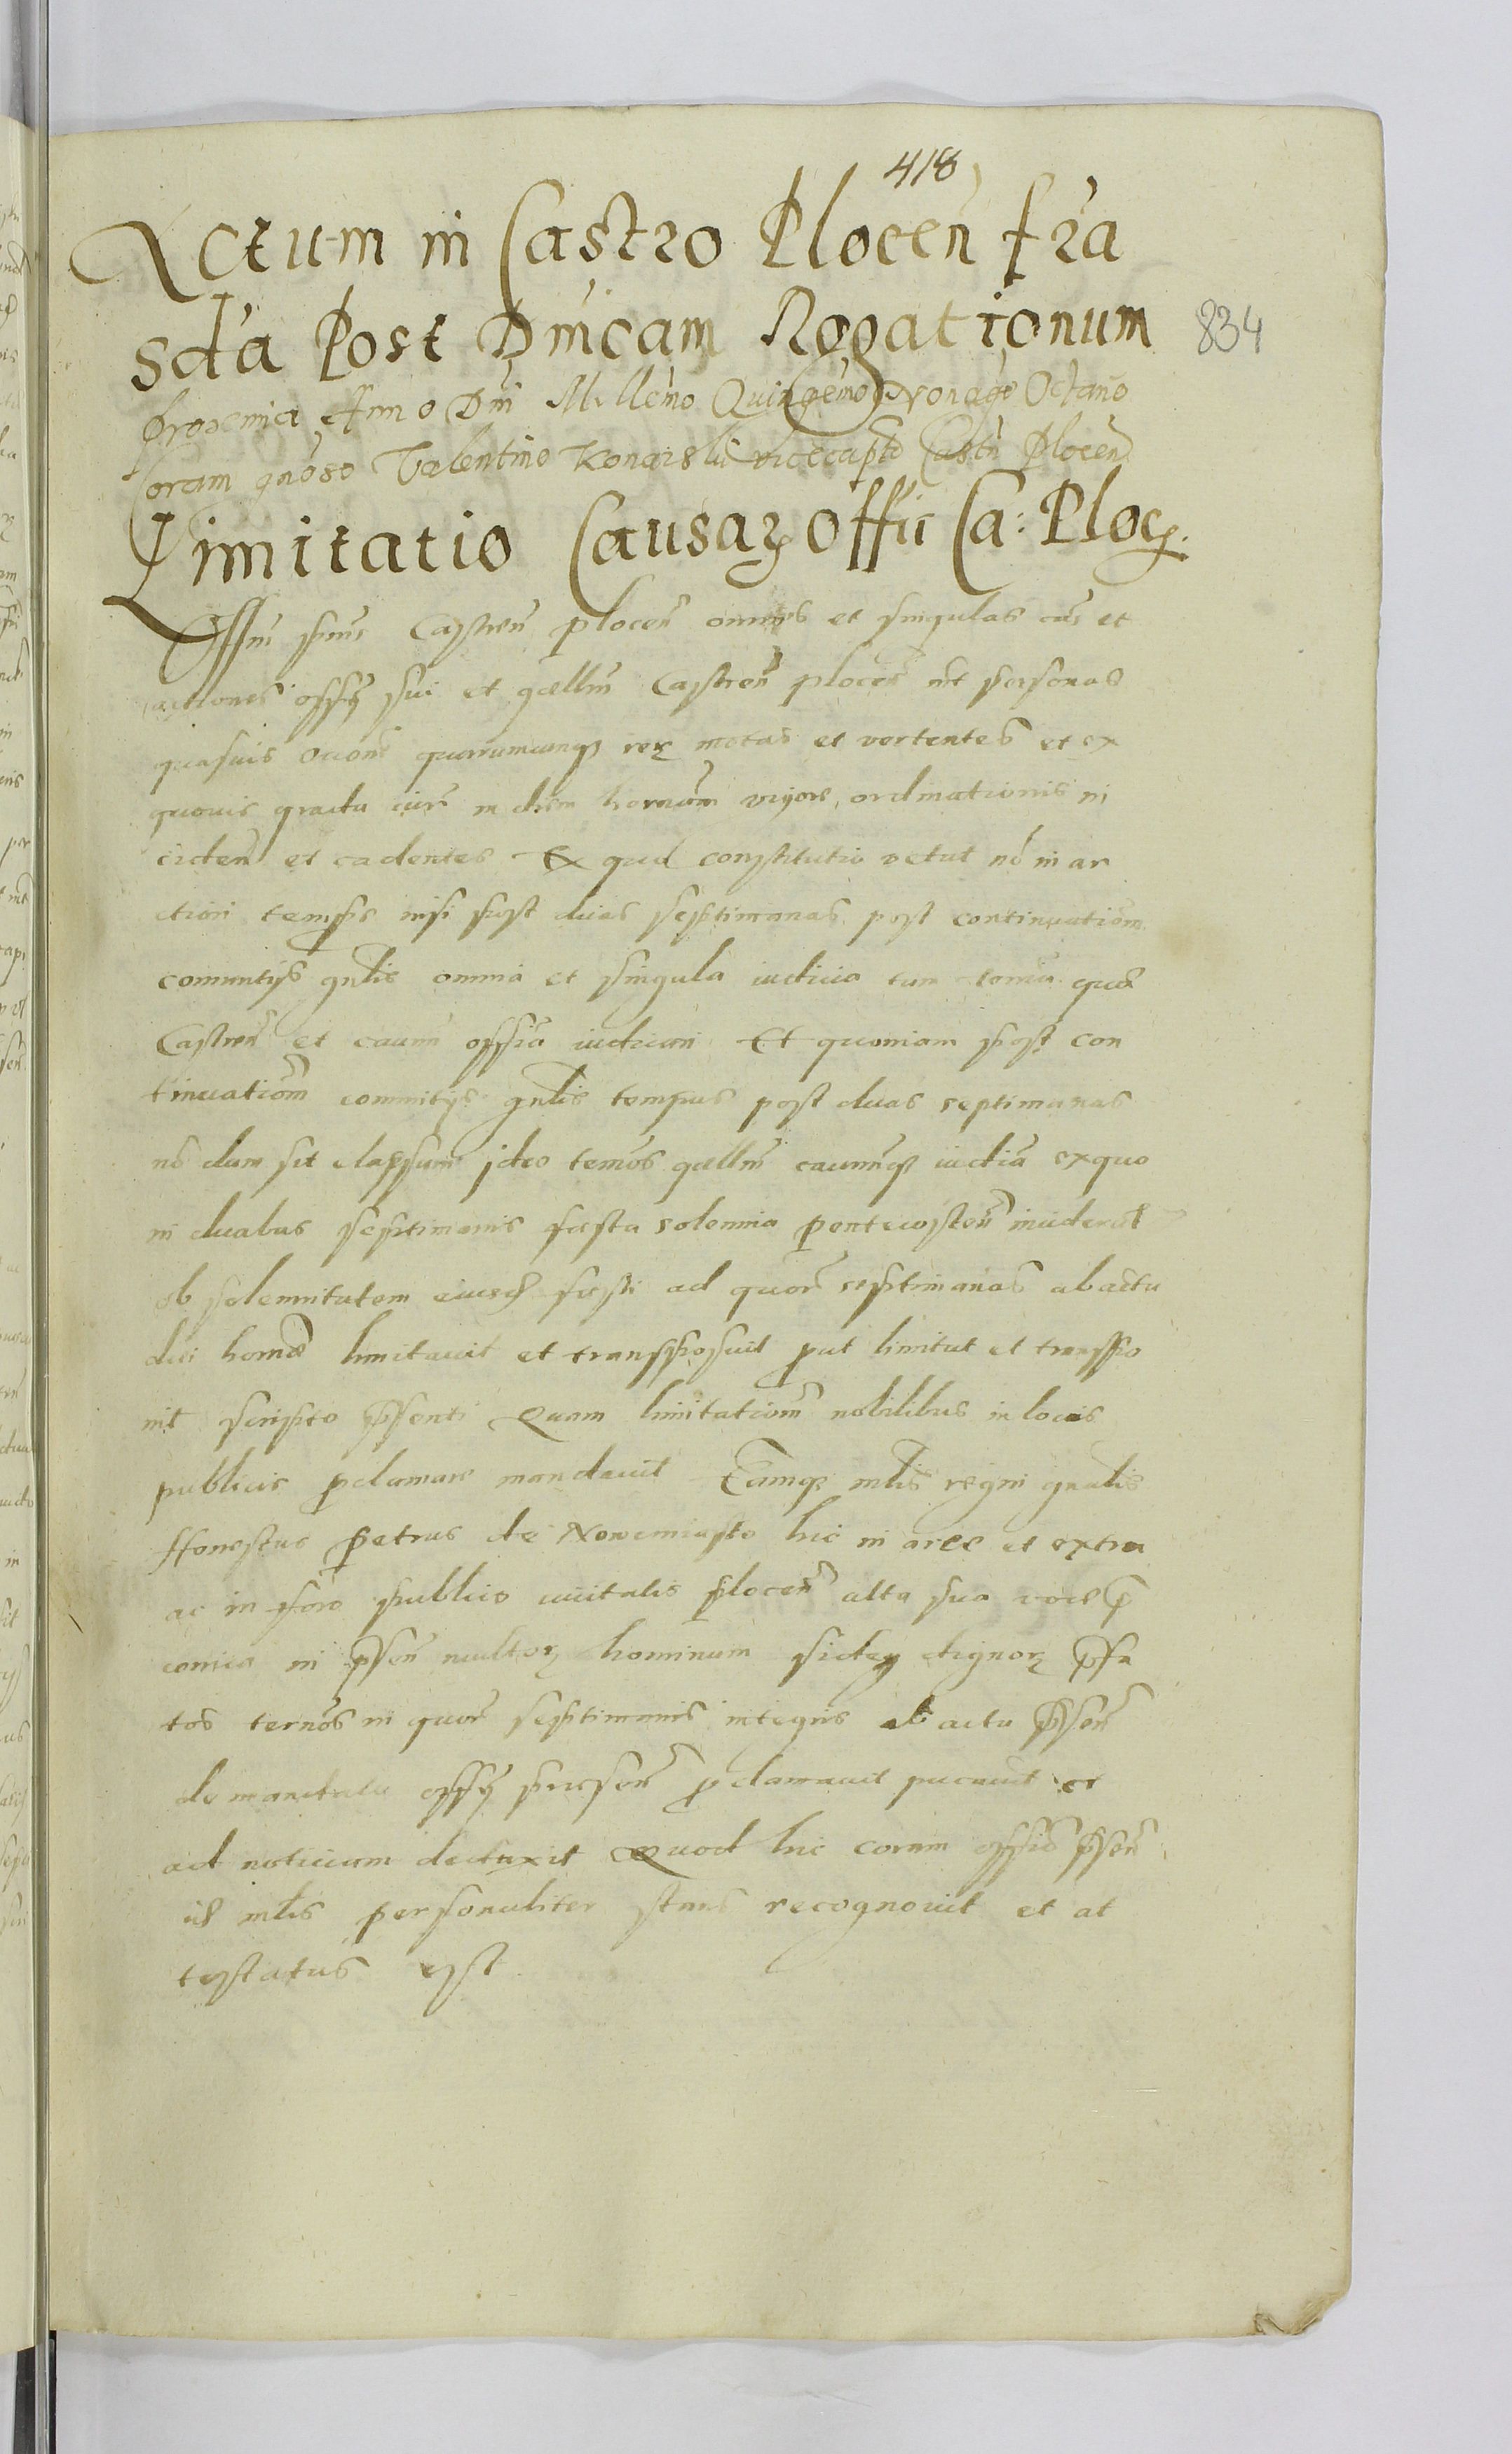 418
Actum in Castro Plocen fra
834
scđa Post Dnicam Rogationum
proxima Anno Dni Millemo Quingemo Nonage Octauo
Coram gnoso Valentino Konarski vicecapto Castri Plocen
Limitatio Causaꝝ Offii Ca: Ploc.
Offm pns Castren plocen omnes et singulas cas et
actiones offy sui et qꝛellm Castren plocen int personas
quasuis occone quarumcunqꝫ reꝝ motas et vertentes et ex
quouis gradu iure in diem hornum vigore ordinationis in
ciden et cadentes Ex quo constitutio vetat no in ar
ctiori tempis nisi post duas septimanas post continuatiom
comintys gnlis omnia et singula iudicia tam
Castren et caumn officia iudicari Et quoniam post con
tinuatiom commitys gnlis tempus post duas septimanas
no dum sit elapsum ideo temos qꝛellm caumnqꝫ iudicia exquo
in duabus septimanis festa solennia pentecosten inciderut
ob solennitatem eiusd festi ad quor septimanas ab actu
diei horno limitauit et transposuit put limitat et transpo
nit scripto psenti Quam limitatiom nobilibus in locis
publicis pclamare mandauit Eamqꝫ mlis regni gnalis
Honestus petrus de Nowemiasto hic in arce et extra
ac in foro publico ciuitatis plocen alta sua voce p
conica in psen multoꝝ hominum fide dignoꝝ pfa
tos ternos in quor septimanis integris ab actu psen
de mandato offy presen pclamauit pucauit et
ad noticiam deduxit Quod hic coram offio psen
id mlis personaliter stans recognouit et at
testatus est